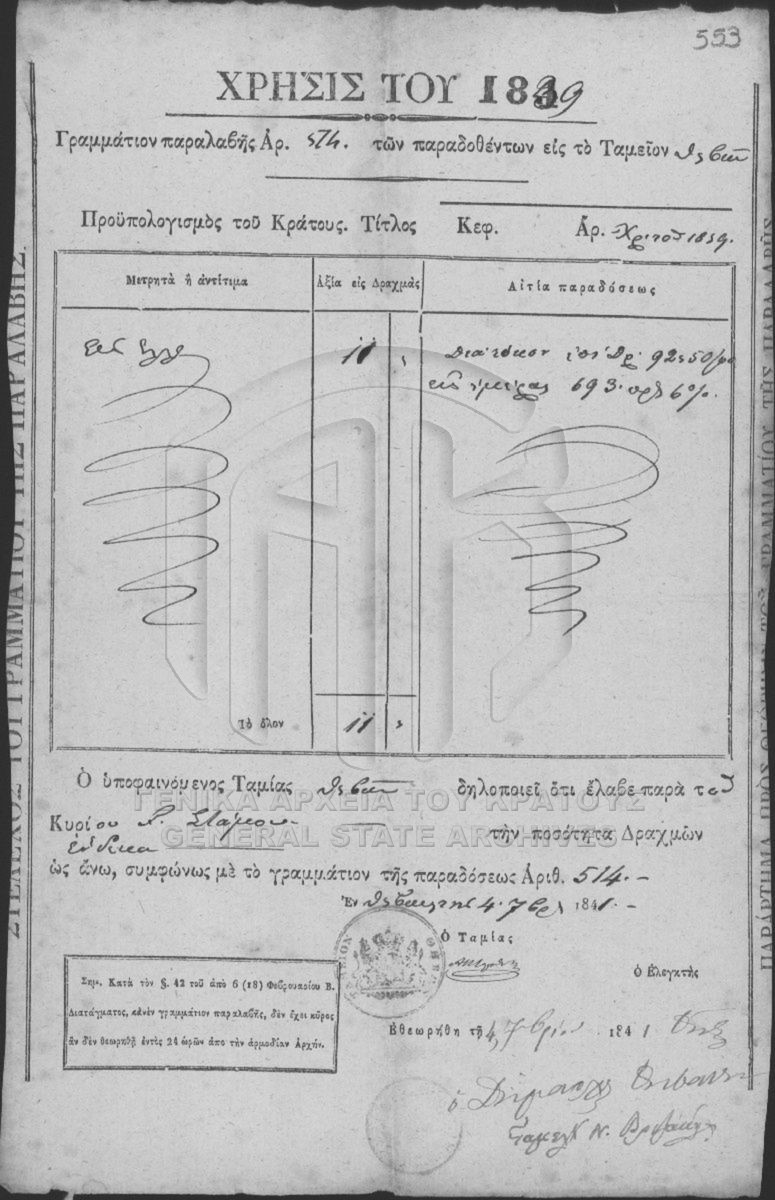 553
ΧΡΗΣΙΣ ΤΟΥ 1839
Γραμμάτιον παραλαβῆς Ἀρ. 514. τῶν παραδοθέντων εἰς τὸ Ταμεῖον Θηβῶν
Προϋπολογισμὸς τοῦ Κράτους. Τίτλος Κεφ. Ἄρ. Χρ. τοῦ 1839.
Μετρητὰ ἢ ἀντίτιμα Ἀξία εἰς Δραχμὰς Αἰτία παραδόσεως
11 Διὰ τόκον ἐπὶ Δρ. 92:50/100
εἰς ἡμέρας 693 πρὸς 6%.
Τὸ ὅλον 11
Ὁ ὑποφαινόμενος Ταμίας Θηβῶν δηλοποιεῖ ὅτι ἔλαβε παρὰ τοῦ
Κυρίου τὴν ποσότητα Δραχμῶν
ἕνδεκα
ὡς ἄνω, συμφώνως μὲ τὸ γραμμάτιον τῆς παραδόσεως Ἀριθ. 514.
Ἐν Θήβαις τῆς 4. 7βρ 1841.
Ὁ Ταμίας
ὁ Ἐλεγκτής
Σημ. Κατὰ τὸν §. 42 τοῦ ἀπὸ 6 (18) Φεβρουαρίου Β.
Διατάγματος, κἀνὲν γραμμάτιον παραλαβῆς, δὲν ἔχει κῦρος
ἂν δὲν θεωρηθῇ ἐντὸς 24 ὡρῶν ἀπὸ τὴν ἁρμοδίαν Ἀρχήν.
Ἐθεωρήθη τῇ 4 7βρίου 1841
ὁ Δήμαρχος Θηβαίων
ΣΤΕΛΕΧΟΣ ΤΟΥ ΓΡΑΜΜΑΤΙΟΥ ΤΗΣ ΠΑΡΑΛΑΒΗΣ.
ΠΑΡΑΡΤΗΜΑ ΠΡΟΣ ΘΕΩΡΗΣΙΝ ΤΟΥ ΓΡΑΜΜΑΤΙΟΥ ΤΗΣ ΠΑΡΑΛΑΒΗΣ
ΓΕΝΙΚΑ ΑΡΧΕΙΑ ΤΟΥ ΚΡΑΤΟΥΣ
GENERAL STATE ARCHIVES